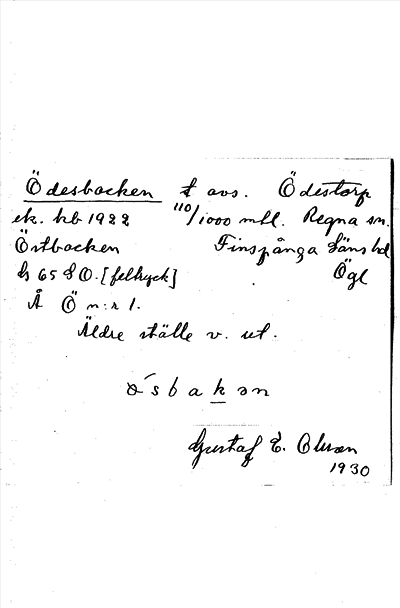 Ödesbacken t avs. Ödestorp
ek. kb 1922 110/1000 mtl. Regna sn.
Östbacken Finspånga läns hd
bs 65 SO. [feltryck] Ögl
Å Ö n:r 1.
Äldre ställe v. ut.
ösbakən
Gustaf E. Olsson
1930